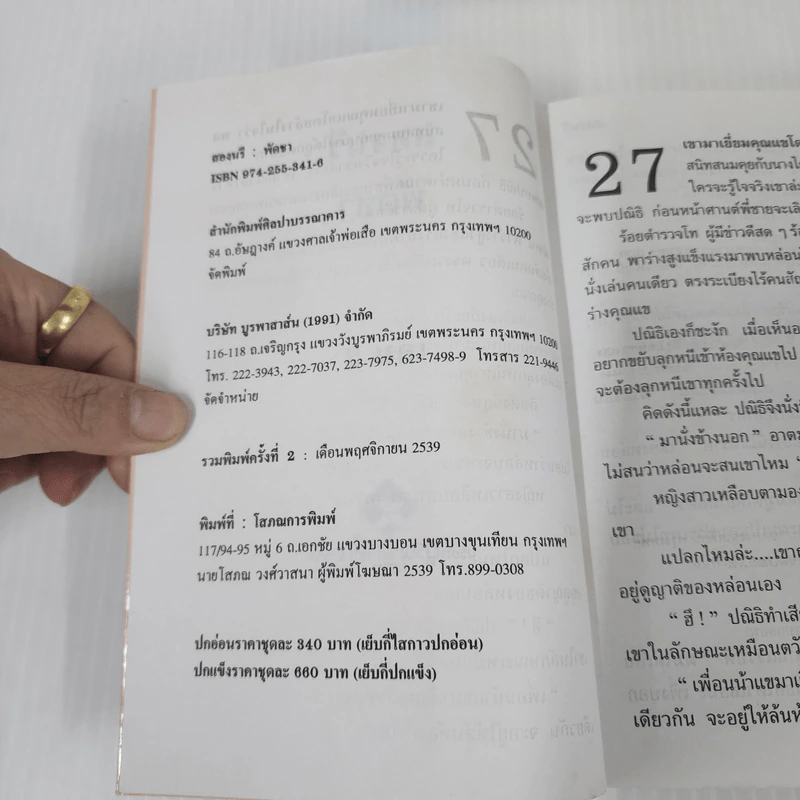 สองนรี : พัดชา
ISBN 974-255-341-6
สำนักพิมพ์ศิลปาบรรณาคาร
84 ถ.อัษฎางค์ แขวงศาลเจ้าพ่อเสือ เขตพระนคร กรุงเทพฯ 10200
จัดพิมพ์
บริษัท บูรพาสาส์น (1991) จำกัด
116-118 ถ.เจริญกรุง แขวงวังบูรพาภิรมย์ เขตพระนคร กรุงเทพฯ 10200
โทร. 222-3943, 222-7037, 223-7975, 623-7498-9 โทรสาร 221-9446
จัดจำหน่าย
รวมพิมพ์ครั้งที่ 2 : เดือนพฤศจิกายน 2539
พิมพ์ที่ : โสภณการพิมพ์
117/94-95 หมู่ 6 ถ.เอกชัย แขวงบางบอน เขตบางขุนเทียน กรุงเทพฯ
นายโสภณ วงศ์วาสนา ผู้พิมพ์โฆษณา 2539 โทร.899-0308
ปกอ่อนราคาชุดละ 340 บาท (เย็บกี่ไสกาวปกอ่อน)
ปกแข็งราคาชุดละ 660 บาท (เย็บกี่ปกแข็ง)
27
เขามาเยี่ยมคุณแขโด
สนิทสนมคุยกับนางไ
ใครจะรู้ใจจริงเขาล่
จะพบปณิธิ ก่อนหน้าศานต์พี่ชายจะเลิ
ร้อยตำรวจโท ผู้มีข่าวดีสด ๆ ร้อ
สักคน พาร่างสูงแข็งแรงมาพบหล่อน
นั่งเล่นคนเดียว ตรงระเบียงไร้คนสัญ
ร่างคุณแข
ปณิธิเองก็ชะงัก เมื่อเห็นอ
อยากขยับลุกหนีเข้าห้องคุณแขไป
จะต้องลุกหนีเขาทุกครั้งไป
คิดดังนี้แหละ ปณิธิจึงนั่งนิ
“ มานั่งข้างนอก ” อาตม
ไม่สนว่าหล่อนจะสนเขาไหม “
หญิงสาวเหลือบตามอง
เขา
แปลกไหมล่ะ....เขาถ
อยู่ดูญาติของหล่อนเอง
“ ฮึ ! ” ปณิธิทำเสีย
เขาในลักษณะเหมือนตวั
“ เพื่อนน้าแขมาเ
เดียวกัน จะอยู่ให้ล้นห้